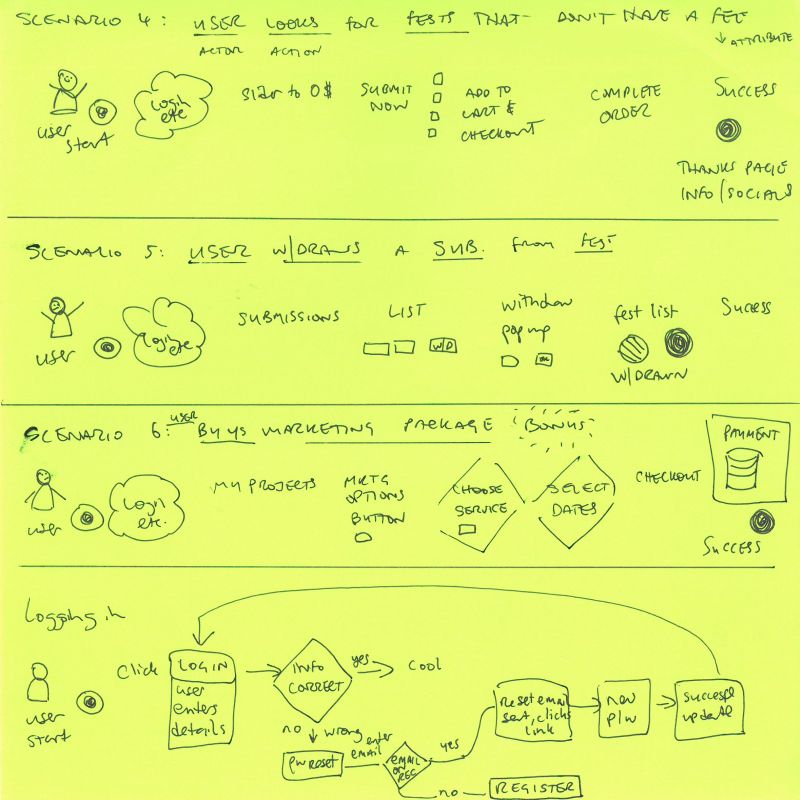 SCENARIO 4: USER LOOKS for FESTS THAT DON'T HAVE A FEE
ACTOR ACTION
↓ ATTRIBUTE
user
start
login
etc
slider to 0$
SUBMIT
NOW
ADD TO
CART &
CHECKOUT
COMPLETE
ORDER
SUCCESS
THANKS PAGE
INFO/SOCIALS
SCENARIO 5: USER W/DRAWS A SUB. from FEST
user
login
etc
SUBMISSIONS
LIST
W/D
withdraw
popup
OK
fest list
W/DRAWN
SUCCESS
SCENARIO 6: USER BUYS MARKETING PACKAGE BONUS
user
login
etc.
MY PROJECTS
MKTG
OPTIONS
BUTTON
CHOOSE
SERVICE
SELECT
DATES
CHECKOUT
PAYMENT
SUCCESS
Logging in
user
start
Click
LOGIN
user
enters
details
INFO
CORRECT
yes
COOL
no
wrong
PW RESET
enter
EMAIL
EMAIL
ON
REC
yes
reset email
sent, clicks
link
new
p/w
successful
update
no
REGISTER